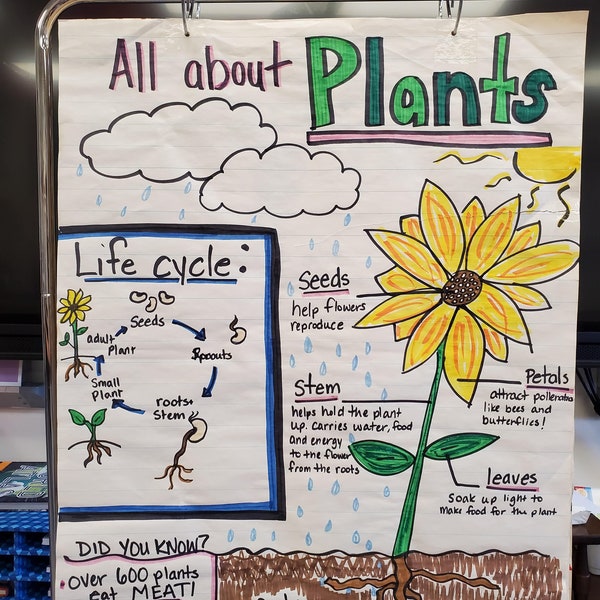 All about Plants
Life cycle:
Seeds
Sprouts
roots+
Stem
Small
Plant
adult
Plant
Seeds
help flowers
reproduce
Stem
helps hold the plant
up. carries water, food
and energy
to the flower
from the roots
Petals
attract
like bees and
butterflies!
leaves
Soak up light to
make food for the plant
DID YOU KNOW?
• Over 600 plants
eat MEAT!